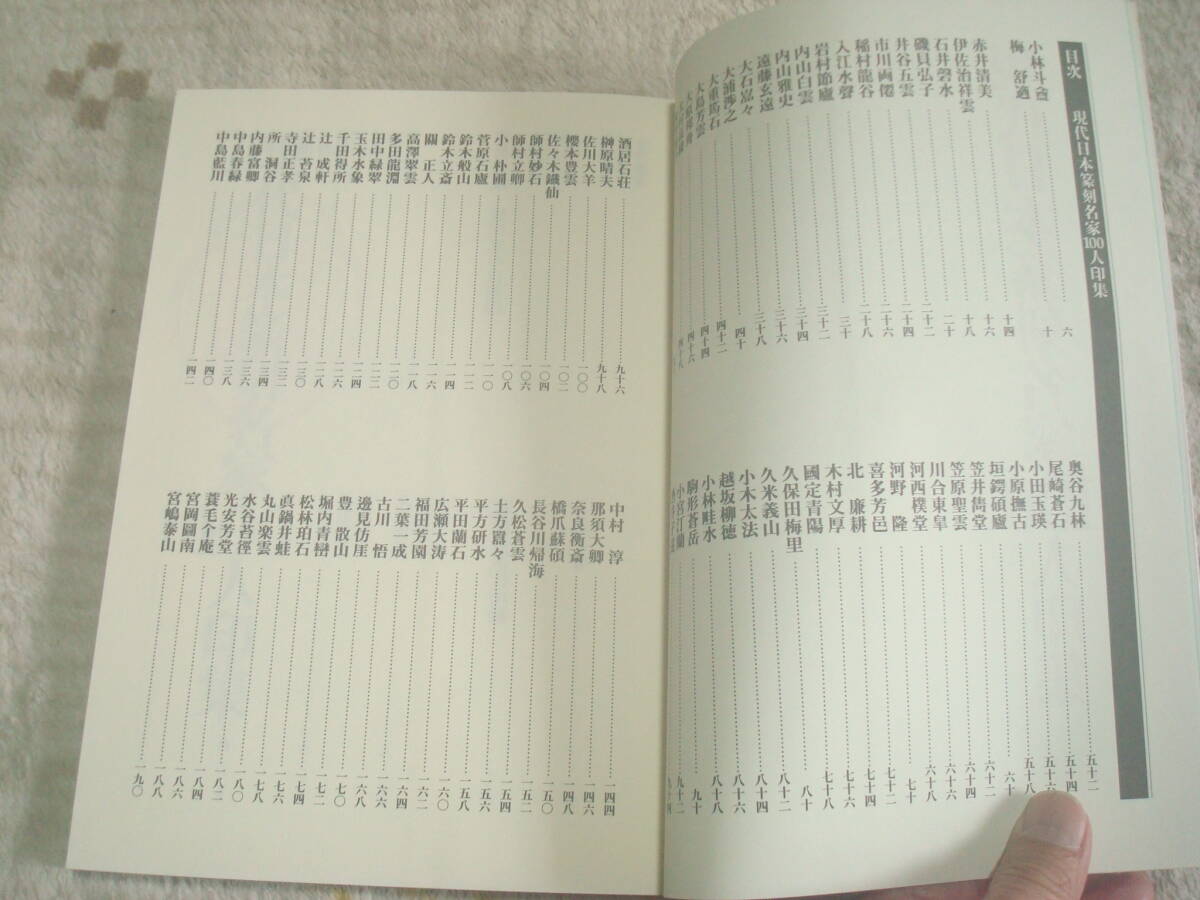 目次 現代日本篆刻名家100人印集
小林斗盦 六
梅 舒適 十
赤井清美 十四
伊佐治祥雲 十六
石井磬水 十八
磯貝弘子 二十
井谷五雲 二十二
市川両僊 二十四
稲村龍谷 二十六
入江水聲 二十八
岩村節廬 三十
内山白雲 三十二
内山雅史 三十四
遠藤玄遠 三十六
大石嘉々 三十八
大浦渉之 四十
大重筠石 四十二
大島芳雲 四十四
四十六
四十八
奥谷九林 五十二
尾崎蒼石 五十四
小田玉瑛 五十六
小原撫古 五十八
垣鍔碩廬 六十
笠井雋堂 六十二
笠原聖雲 六十四
川合東皐 六十六
河西樸堂 六十八
河野 隆 七十
喜多芳邑 七十二
北 廉耕 七十四
木村文厚 七十六
國定青陽 七十八
久保田梅里 八十
久米義山 八十二
小木太法 八十四
越坂柳徳 八十六
小林畦水 八十八
駒形蒼岳 九十
小宮江蘭 九十二
九十四
酒居石荘 九十六
榊原晴夫 九十八
佐川大羊 一〇〇
櫻本豊雲 一〇二
佐々木鐵仙 一〇四
師村妙石 一〇六
師村立卿 一〇八
小 朴圃 一一〇
菅原石廬 一一二
鈴木般山 一一四
鈴木立斎 一一六
關 正人 一一八
高澤翠雲 一二〇
多田龍淵 一二二
田中緑翠 一二四
玉木水象 一二六
千田得所 一二八
辻 成軒 一三〇
辻 苔泉 一三二
寺田正孝 一三四
所 洞谷 一三六
内藤富卿 一三八
中島春緑 一四〇
中島藍川 一四二
中村 淳 一四四
那須大卿 一四六
奈良衡斎 一四八
橋爪蘇碩 一五〇
長谷川帰海 一五二
久松蒼雲 一五四
土方囂々 一五六
平方研水 一五八
平田蘭石 一六〇
広瀬大涛 一六二
福田芳園 一六四
二葉一成 一六六
古川 悟 一六八
邊見仿崖 一七〇
豊 散山 一七二
堀内青巒 一七四
松林珀石 一七六
真鍋井蛙 一七八
丸山楽雲 一八〇
水谷苔徑 一八二
光安芳堂 一八四
蓑毛个庵 一八六
宮岡圖南 一八八
宮嶋泰山 一九〇